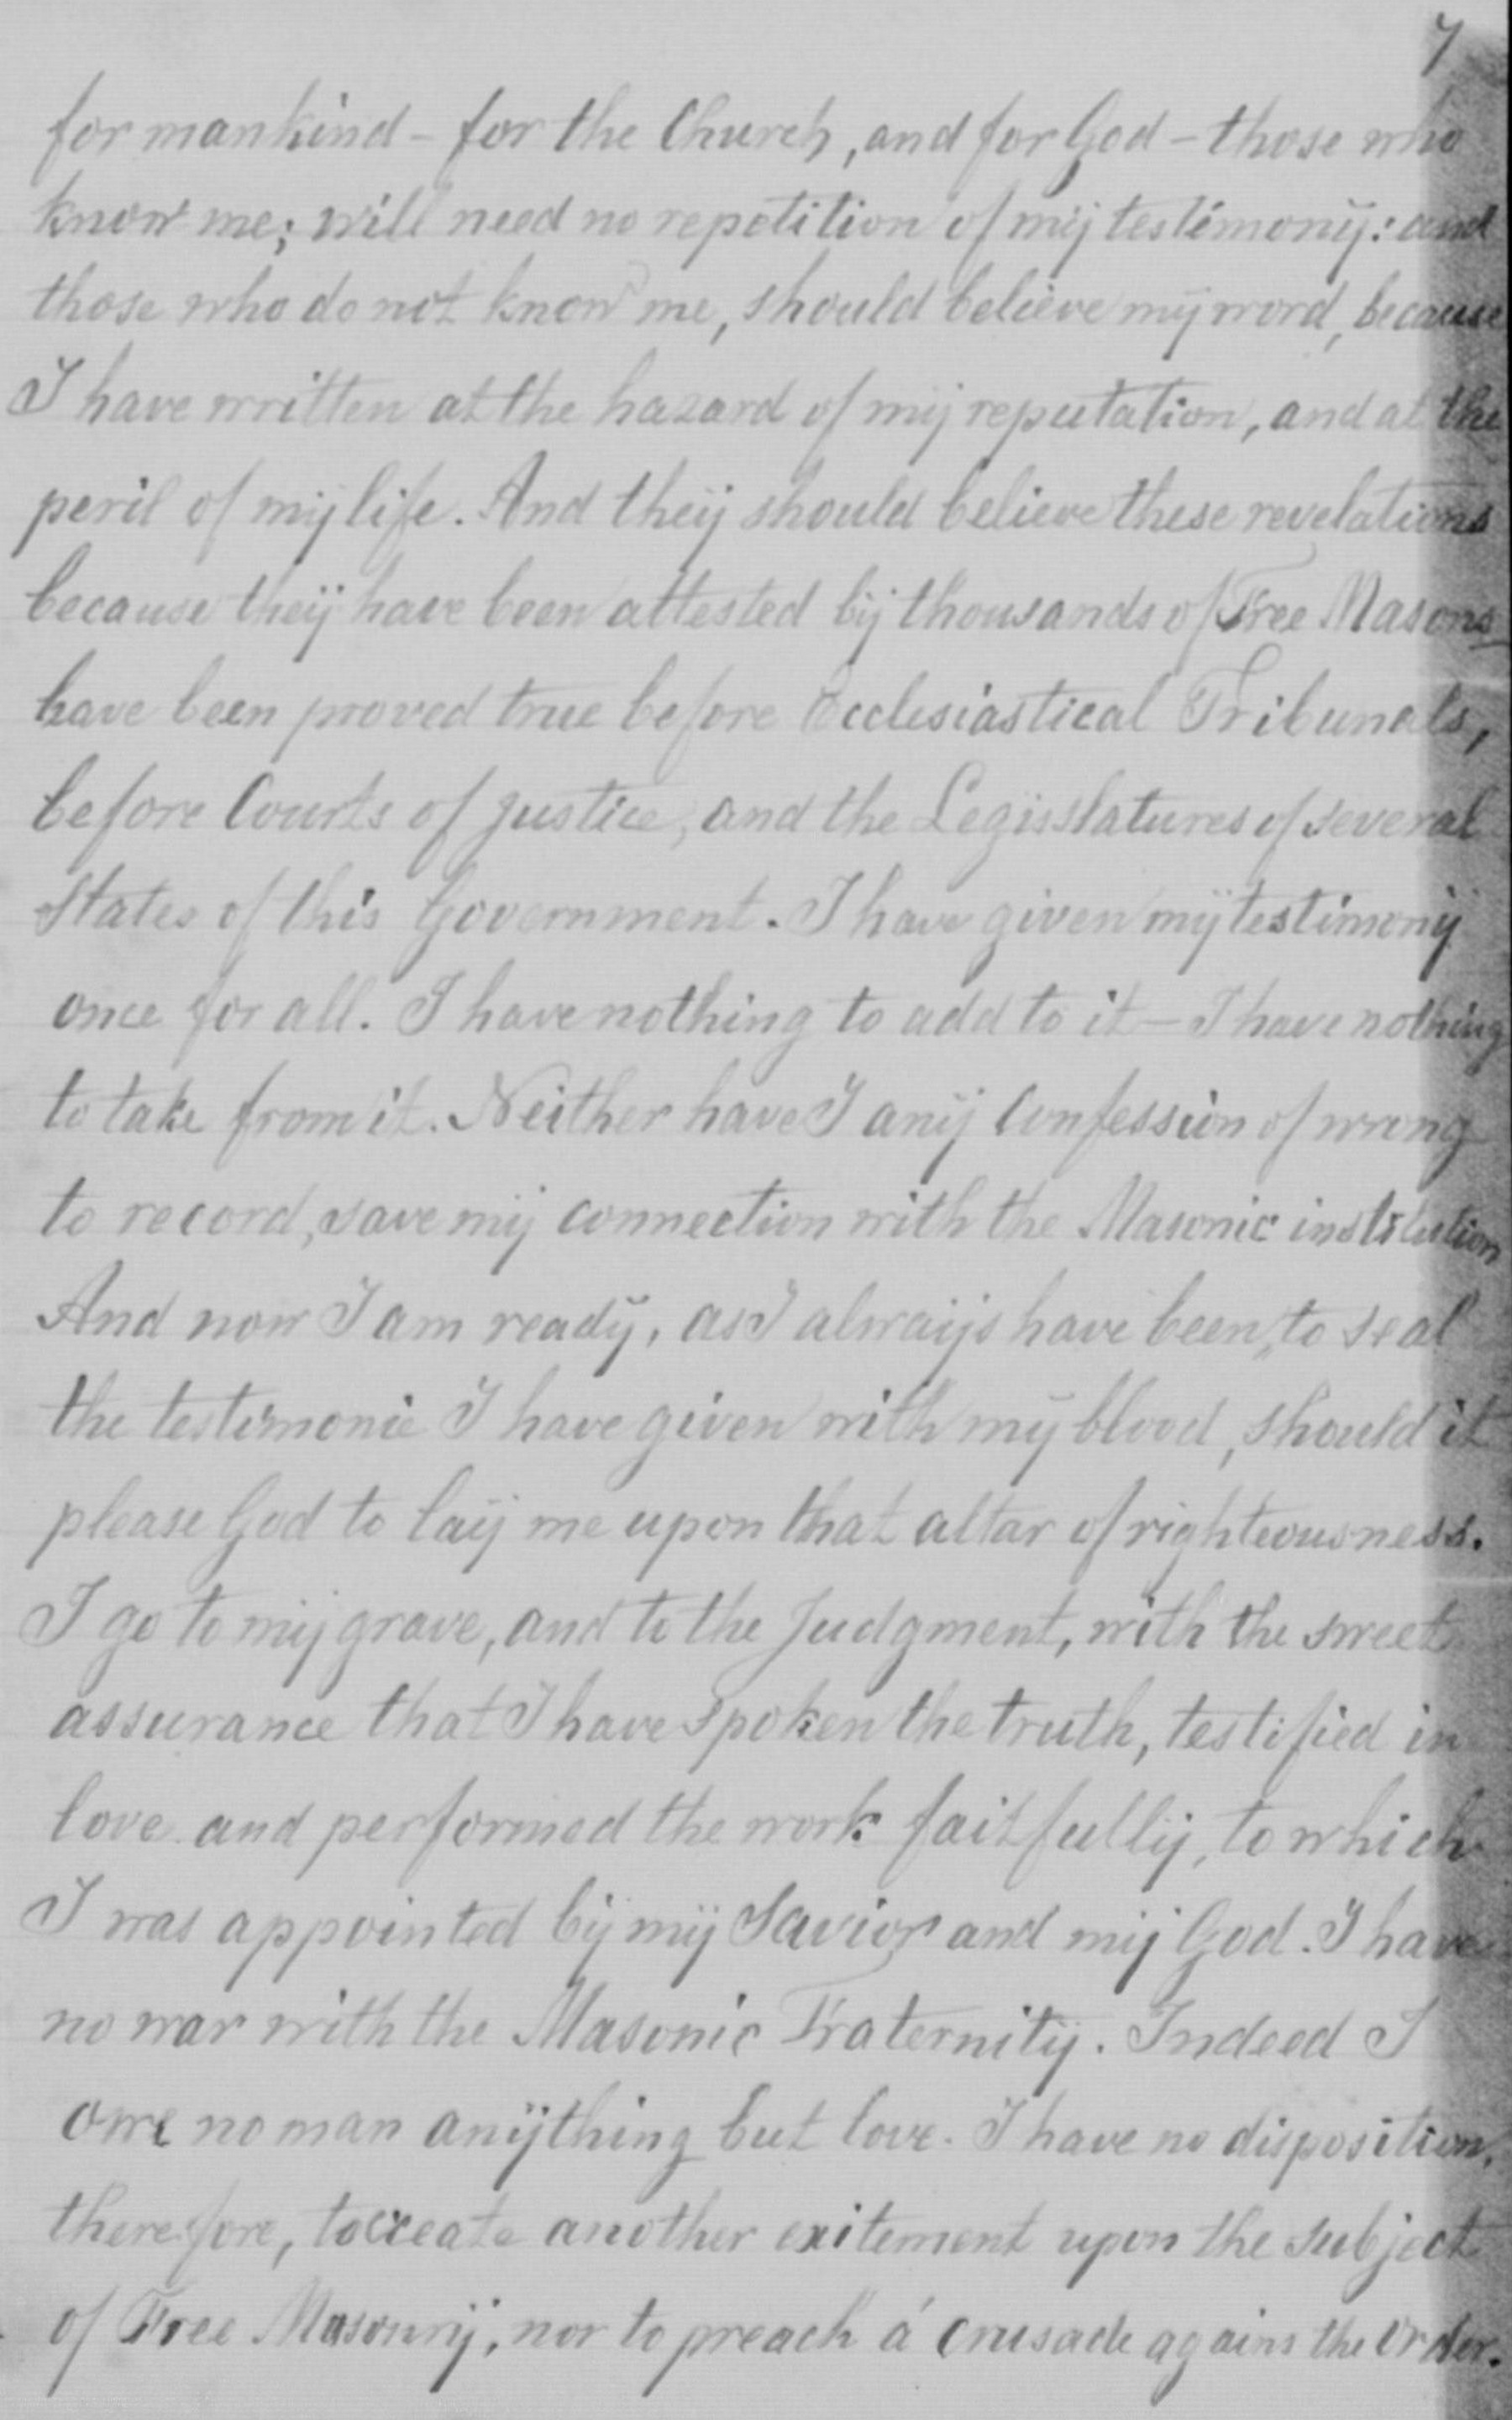 7
for mankind - for the Church, and for God - those who
know me; will need no repetition of my testimony: and
those who do not know me, should believe my word, because
I have written at the hazard of my reputation, and at the
peril of my life. And they should believe these revelations
because they have been attested by thousands of Free Masons
have been proved true before Ecclesiastical Tribunals,
before Courts of justice, and the Legisslatures of several
States of this Government. I have given my testimony
once for all. I have nothing to add to it - I have nothing
to take from it. Neither have I any Confession of wrong
to record, save my connection with the Masonic institution
And now I am ready, as I always have been, to seal
the testimonie I have given with my blood, should it
please God to lay me upon that altar of righteousness.
I go to my grave, and to the Judgment, with the sweet
assurance that I have spoken the truth, testified in
love and performed the work faitfully, to which
I was appointed by my Savior and my God. I have
no war with the Masonic Fraternity. Indeed I
owe no man anything but love. I have no disposition,
therefore, to create another exitement upon the subject
of Free Masonry, nor to preach a crusade agains the Order.